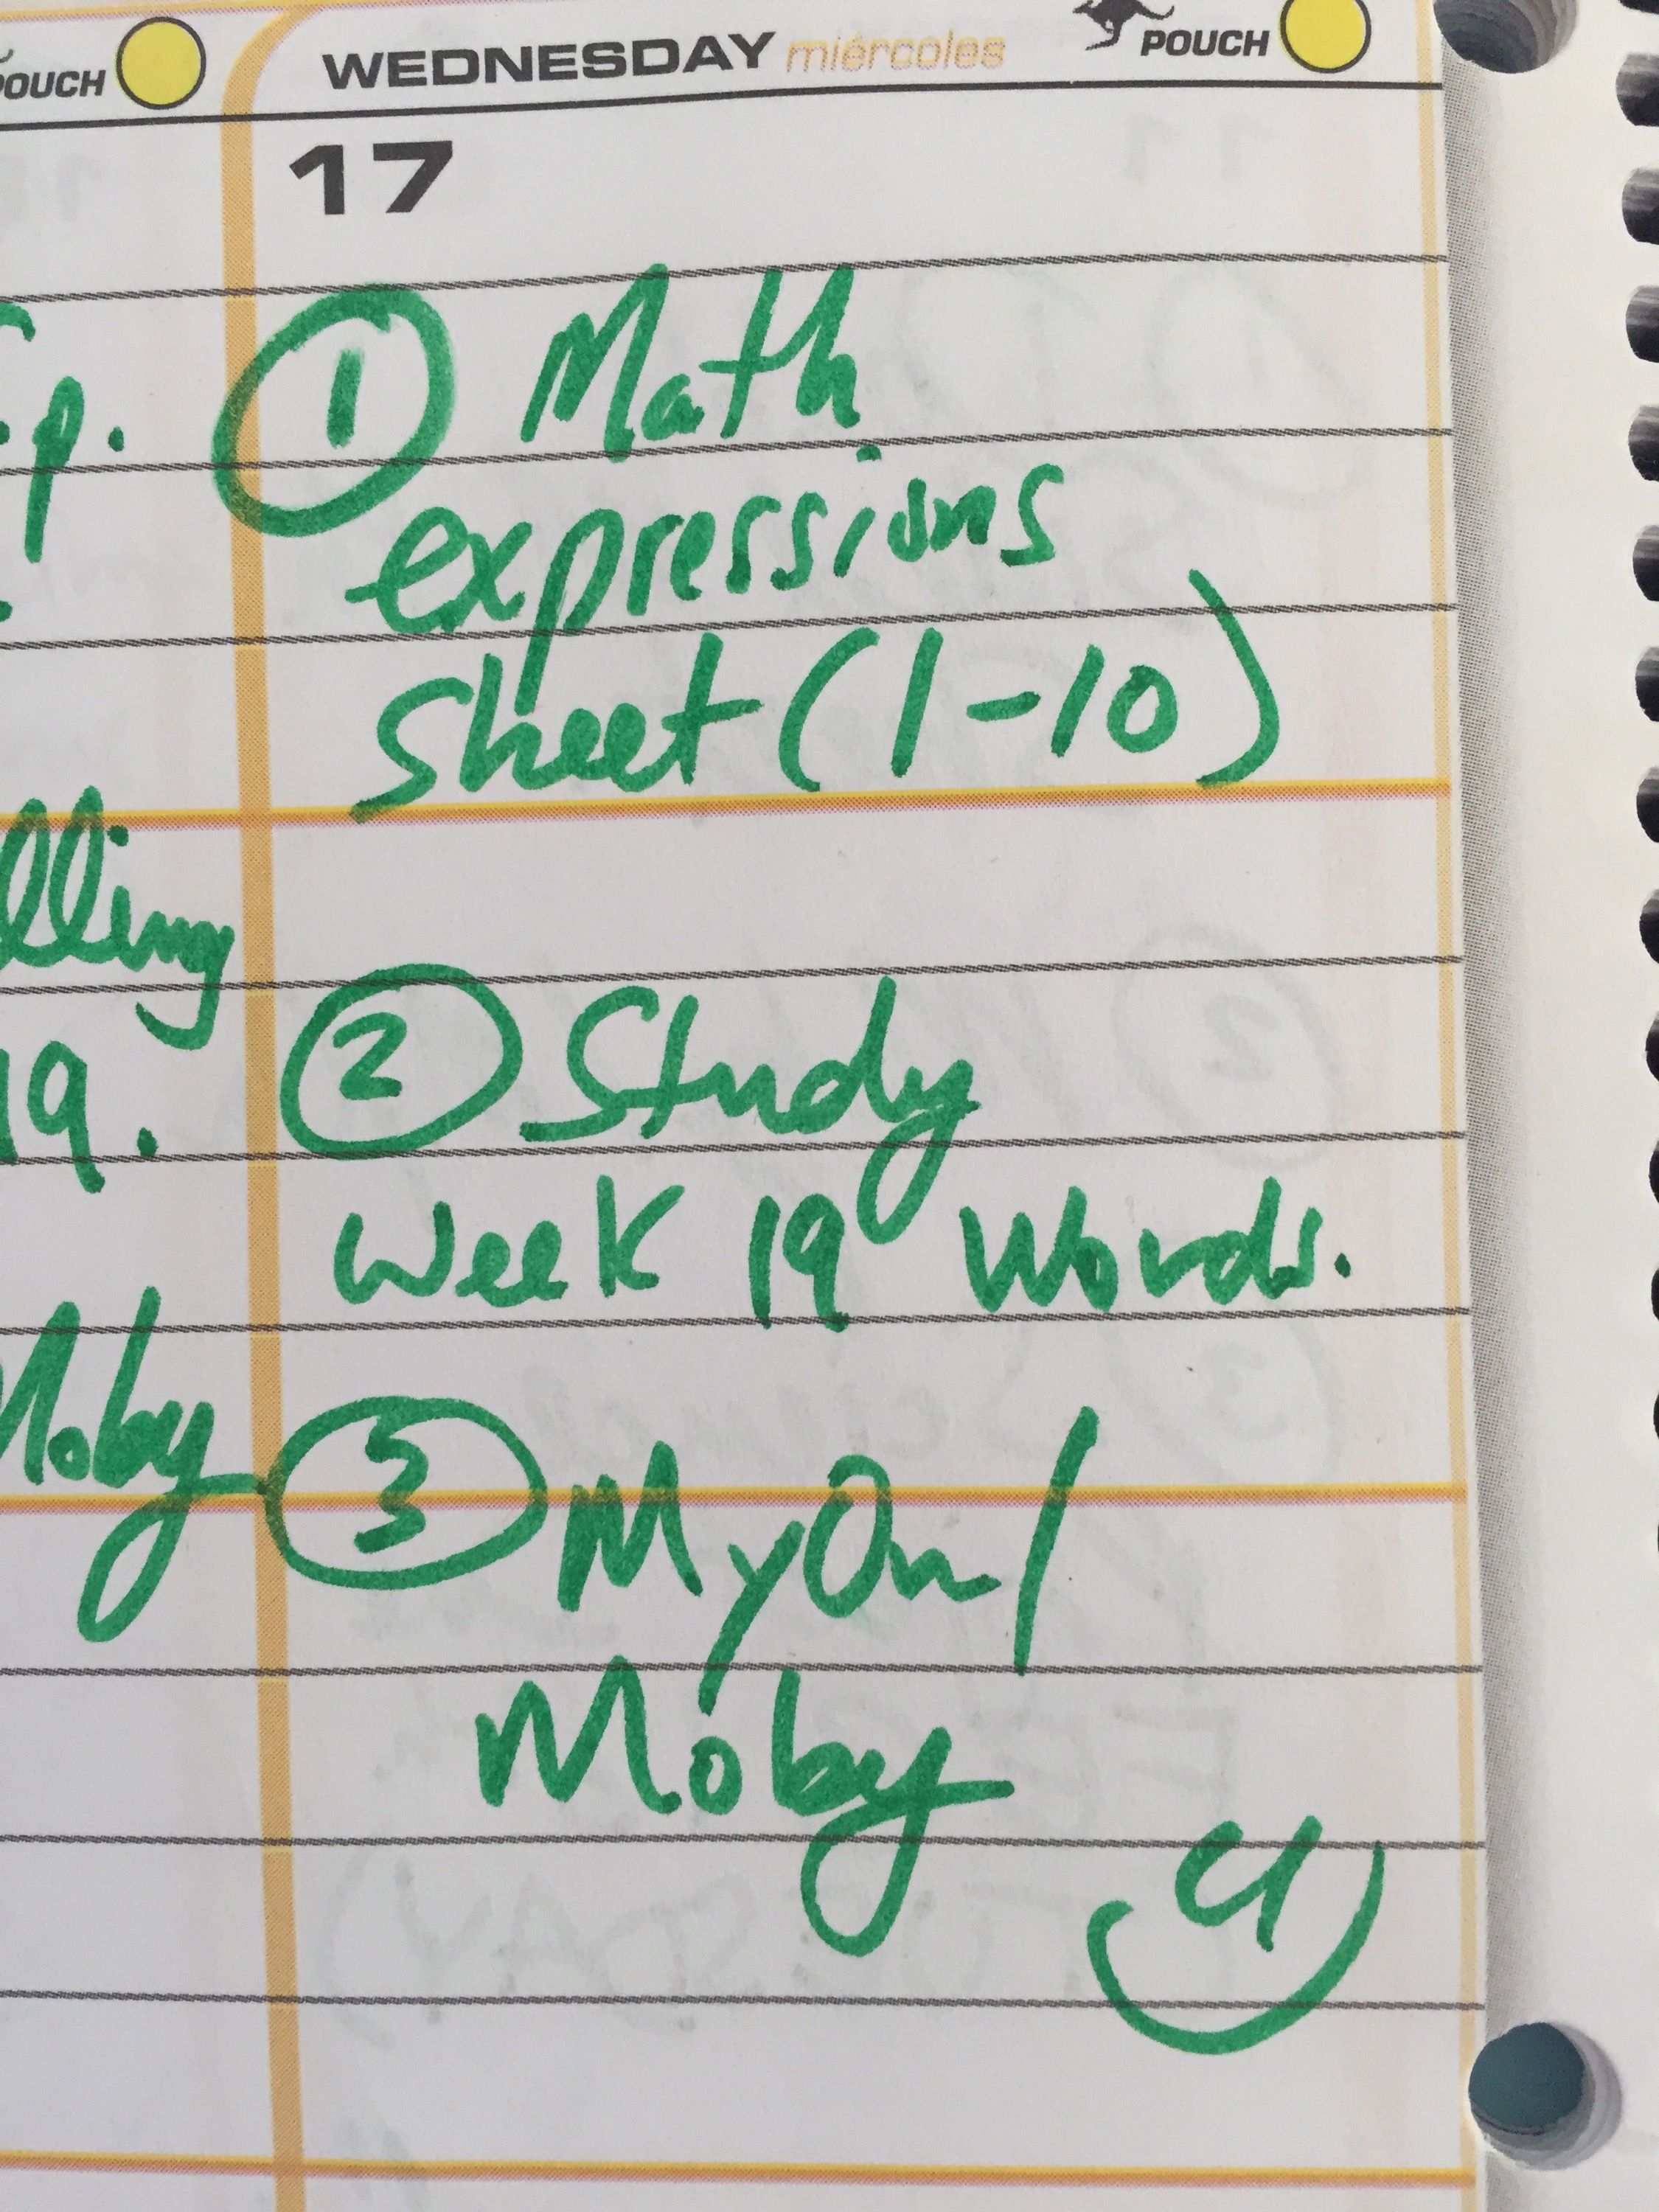 POUCH
WEDNESDAY miércoles
POUCH
17
p.
① Math
expressions
sheet (1-10)
lling
19.
② Study
Week 19 Words.
Moby
③ MyOn/
Moby